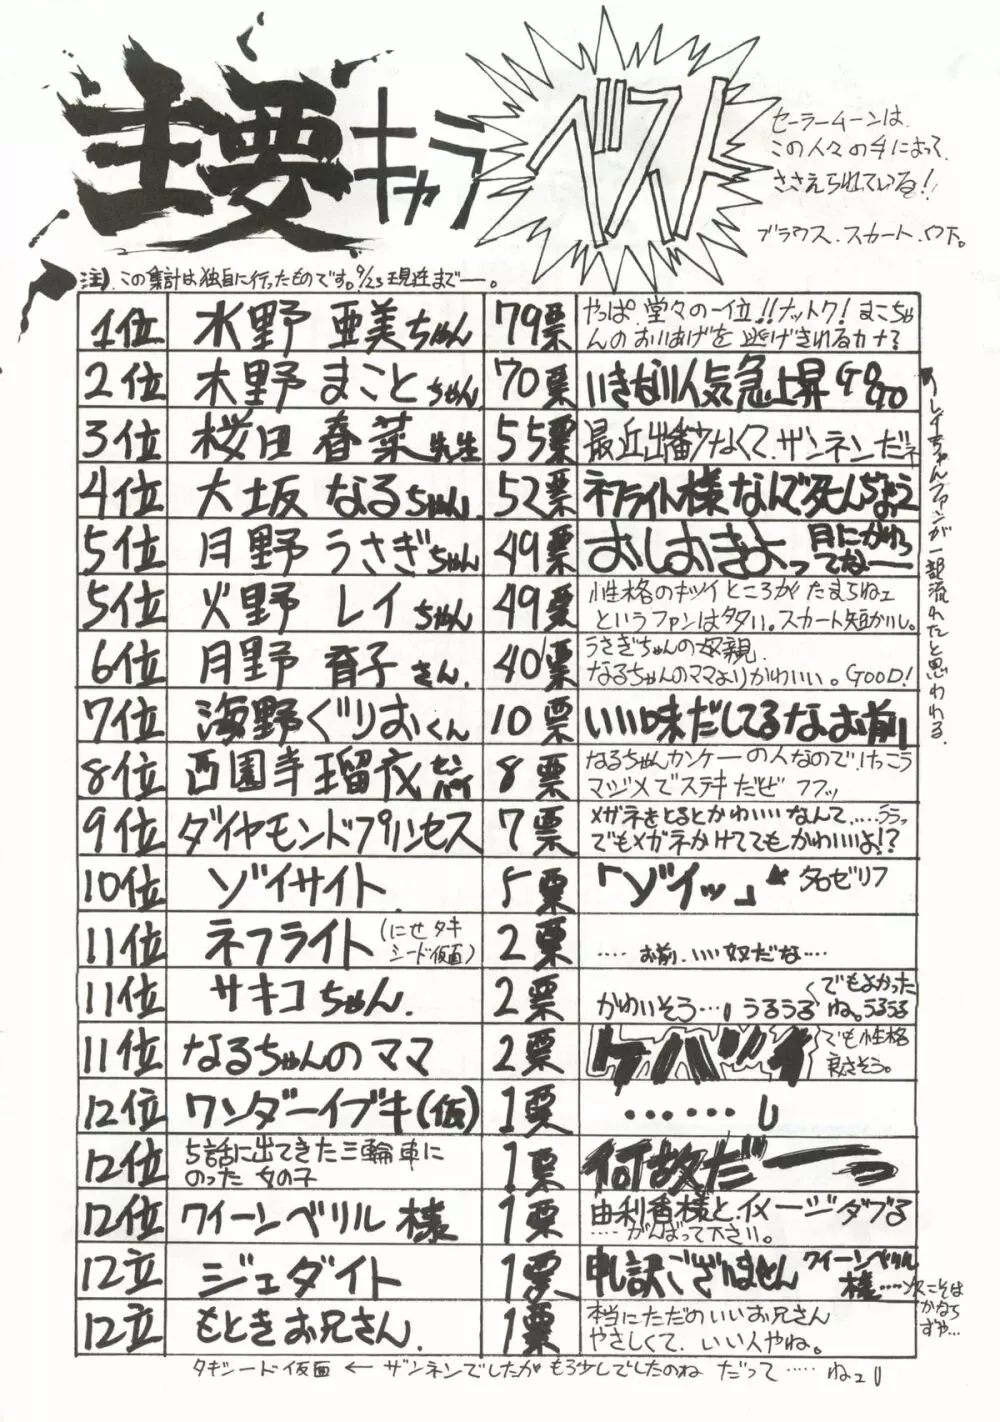 主要キャラ ベスト
セーラームーンは、
この人々の手によって、
ささえられている!
ブラウス.スカート.ロ下。
注)この集計は独自に行ったものです。9/23現在まで―。
1位 水野 亜美ちゃん 79票 やっぱ堂々の一位!!ナットク! まこちゃ
んのおいあげを 逃げきれるカナ?
2位 木野 まことちゃん 70票 いきなり人気急上昇GO GO
3位 桜田 春菜先生 55票 最近出番少なくて、ザンネンだネ
4位 大坂 なるちゃん. 52票 ネフライト様なんで死んじゃう
5位 月野 うさぎちゃん 49票 おしおきよっ 月にかわっ
てな――
5位 火野 レイちゃん 49票 性格のキツイところがたまらねェ
というファンは多い。スカート短かいし。
←レイちゃんファンが一部流れたと思われる.
6位 月野 育子さん. 40票 うさぎちゃんの母親.
なるちゃんのママよりかわいい。GOOD!
7位 海野ぐりおくん 10票 いい味だしてるなお前!
8位 西園寺瑠夜 8票 なるちゃんカンケーの人なので、けっこう
マジメでステキだぜ フフッ
9位 ダイヤモンドプリンセス 7票 メガネをとるとかわいいなんて.....ララッ
でもメガネかけててもかわいいよ!?
10位 ゾイサイト 5票 「ゾイッ」 ← 名ゼリフ
11位 ネフライト(にせタキ
シード仮面) 2票 ....お前.いい奴だな....
11位 サキコちゃん. 2票 かわいそう...! うるうる でもよかった
ね。うるうる
11位 なるちゃんのママ 2票 ケバツイ でも性格
良さそう。
12位 ワンダーイブキ(仮) 1票 ......!
12位 5話に出てきた三輪車に
のった女の子 1票 何故だーっ
12位 クイーンベリル様 1票 由利香様とイメージダブる
....がんばって下さい。
12位 ジェダイト 1票 申し訳ございません クイーンベリル
様....次こそは
かならず
や...
12位 もときお兄さん. 1票 本当にただのいいお兄さん
やさしくて、いい人やね。
タキシード仮面 ← ザンネンでしたが もう少しでしたのね だって..... ねェ!